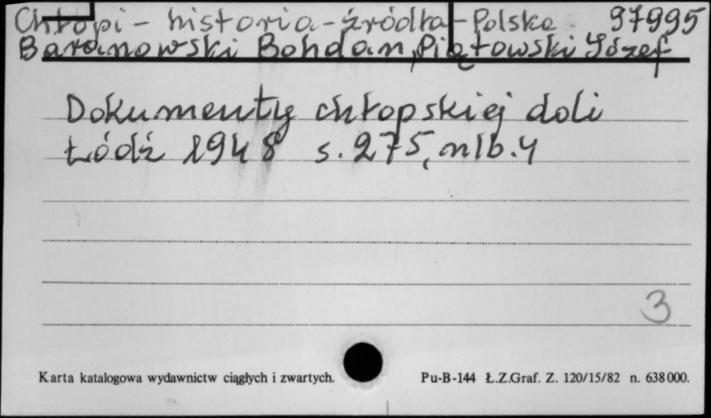 Chłopi - historia - źródła - Polska 97995
Baranowski Bohdan, Piątowski Józef
Dokumenty chłopskiej doli
Łódź 1948 s. 275, nlb. 4
3
Karta katalogowa wydawnictw ciągłych i zwartych. Pu-B-144 Ł.Z.Graf. Z. 120/15/82 n. 638000.